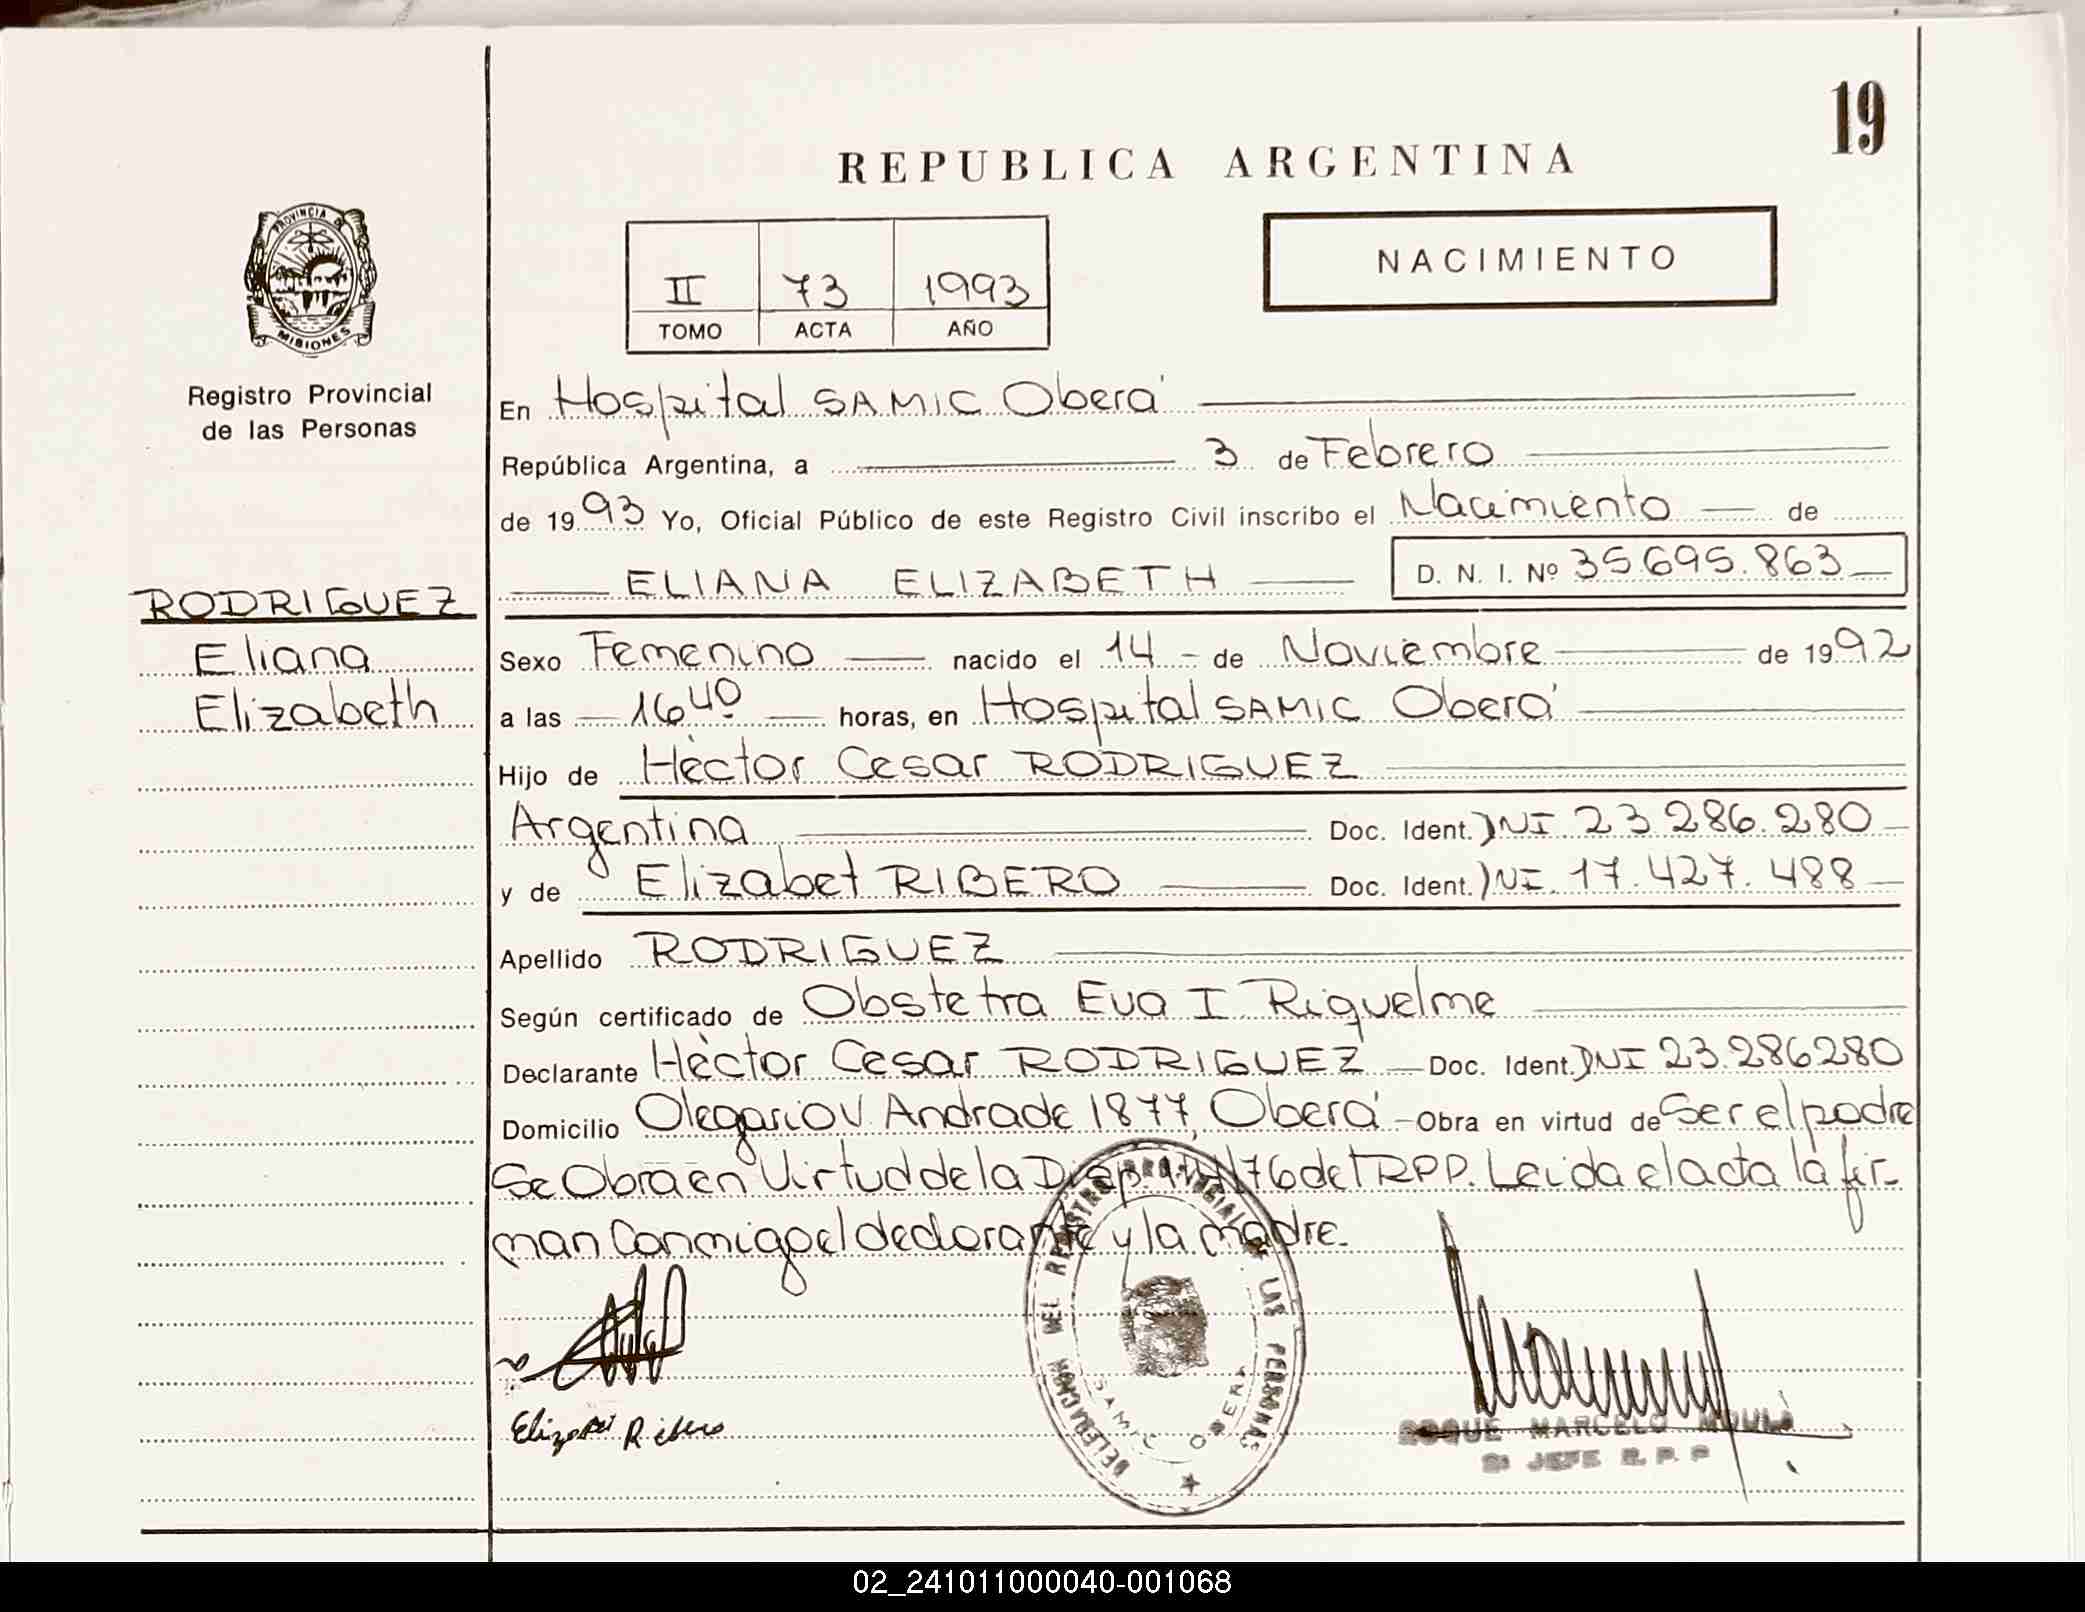 19
REPUBLICA ARGENTINA
PROVINCIA DE
MISIONES
Registro Provincial
de las Personas
II 73 1993
TOMO ACTA AÑO
NACIMIENTO
En Hospital SAMIC Oberá
República Argentina, a 3 de Febrero
de 1993 Yo, Oficial Público de este Registro Civil inscribo el Nacimiento de
ELIANA ELIZABETH D. N. I. Nº 35.695.863
RODRIGUEZ
Eliana
Elizabeth
Sexo Femenino nacido el 14 de Noviembre de 1992
a las 16 40 horas, en Hospital SAMIC Oberá
Hijo de Héctor Cesar RODRIGUEZ
Argentina Doc. Ident. DNI 23.286.280
y de Elizabet RIBERO Doc. Ident. DNI. 17.427.488
Apellido RODRIGUEZ
Según certificado de Obstetra Eva I Riquelme
Declarante Héctor Cesar RODRIGUEZ Doc. Ident. DNI 23.286280
Domicilio Olegario V. Andrade 1877, Oberá Obra en virtud de Ser el padre
Se Obra en Virtud de la Disp. 76 del RPP. Leida el acta la fir-
man Conmigo el declarante y la madre.
DELEGACION DEL REGISTRO PROVINCIAL DE LAS PERSONAS
SAMIC OBERA
Elizabet Ribero
ROQUE MARCELO
JEFE R. P. P
02_241011000040-001068